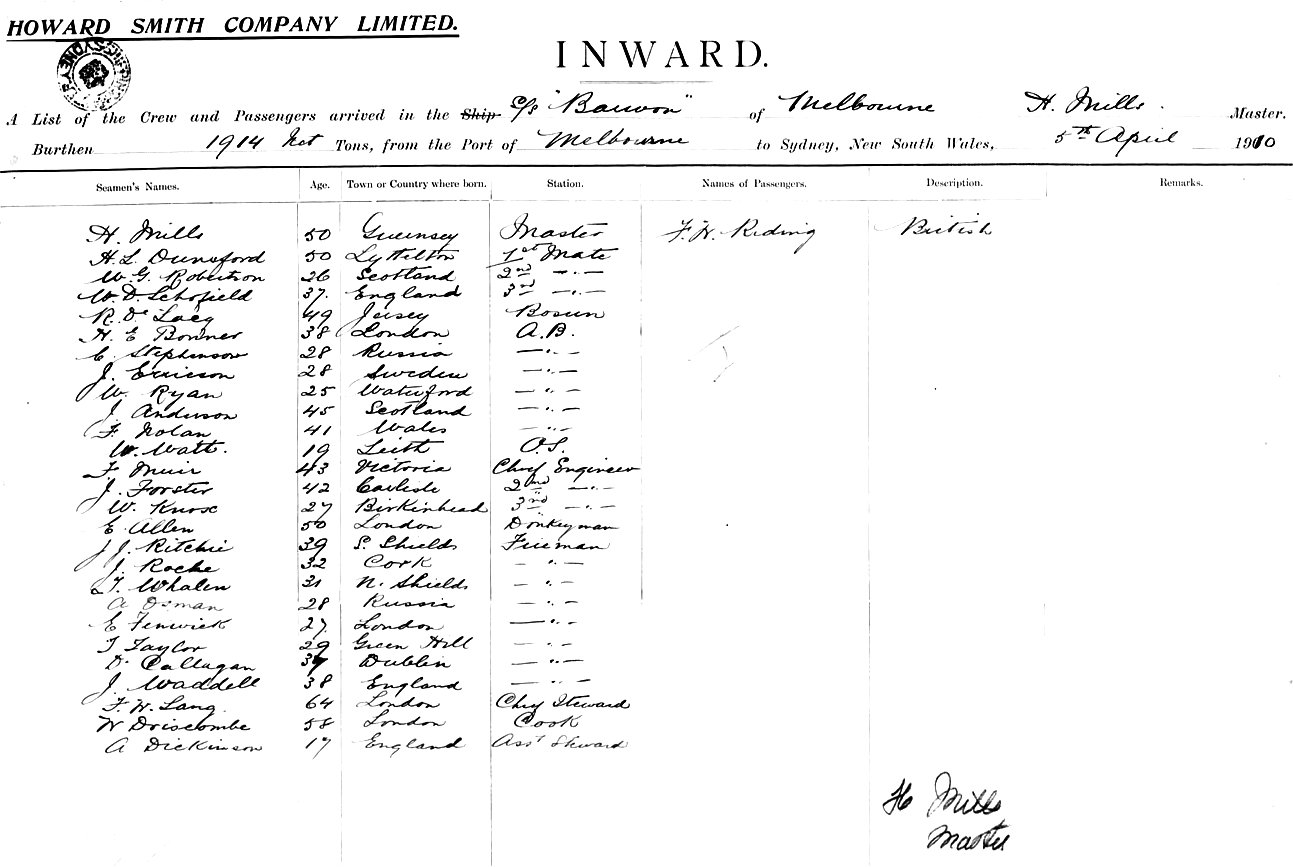 HOWARD SMITH COMPANY LIMITED.
SYDNEY
INWARD.
A List of the Crew and Passengers arrived in the Ship S/S "Barwon" of Melbourne H. Mills. Master.
Burthen 1914 Net Tons, from the Port of Melbourne to Sydney, New South Wales, 5th April 1910
Seamen's Names. Age. Town or Country where born. Station. Names of Passengers. Description. Remarks.
H. Mills 50 Guernsey Master F. W. Riding British
H. L. Dunsford 50 Lyttelton 1st Mate
W. G. Robertson 26 Scotland 2nd —"—
W. D. Schofield 37. England 3rd —"—
R. De Lacy 49 Jersey Bosun
H. E Bonner 38 London A.B.
C. Stephenson 28 Russia —"—
J. Ericson 28 Sweden —"—
W. Ryan 25 Waterford —"—
J. Anderson 45 Scotland —"—
F. Nolan 41 Wales —"—
W. Watt. 19 Leith O.S.
F. Muir 43 Victoria Chief Engineer
J. Forster 42 Carlisle 2nd —"—
W. Knox 27 Birkinhead 3rd —"—
E. Allen 50 London Donkeyman
J. J. Ritchie 39 S. Shields Fireman
J. Roche 32 Cork —"—
T. Whalen 31 N. Shields —"—
A Osman 28 Russia —"—
E Fenwick 27. London —"—
T Taylor 29 Green Hill —"—
D. Callagan 37 Dublin —"—
J. Waddell 38 England —"—
F. W. Lang. 64 London Chief Steward
W Driscombe 58 London Cook
A Dickinson 17 England Asst Steward
H Mills
Master